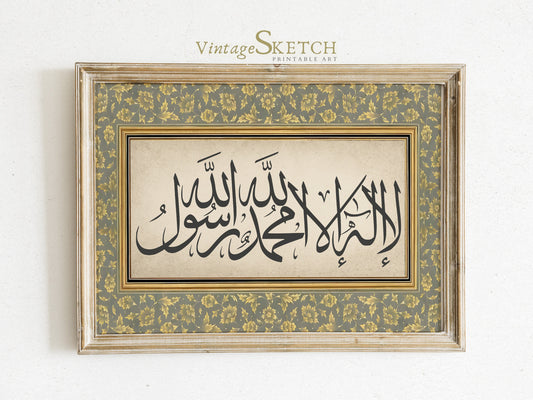 VintageSKETCH
PRINTABLE ART
لا إله إلا الله محمد رسول الله